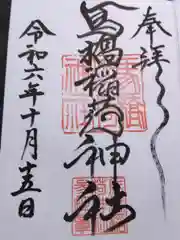 奉拝
馬橋稲荷神社
令和六年十月十五日